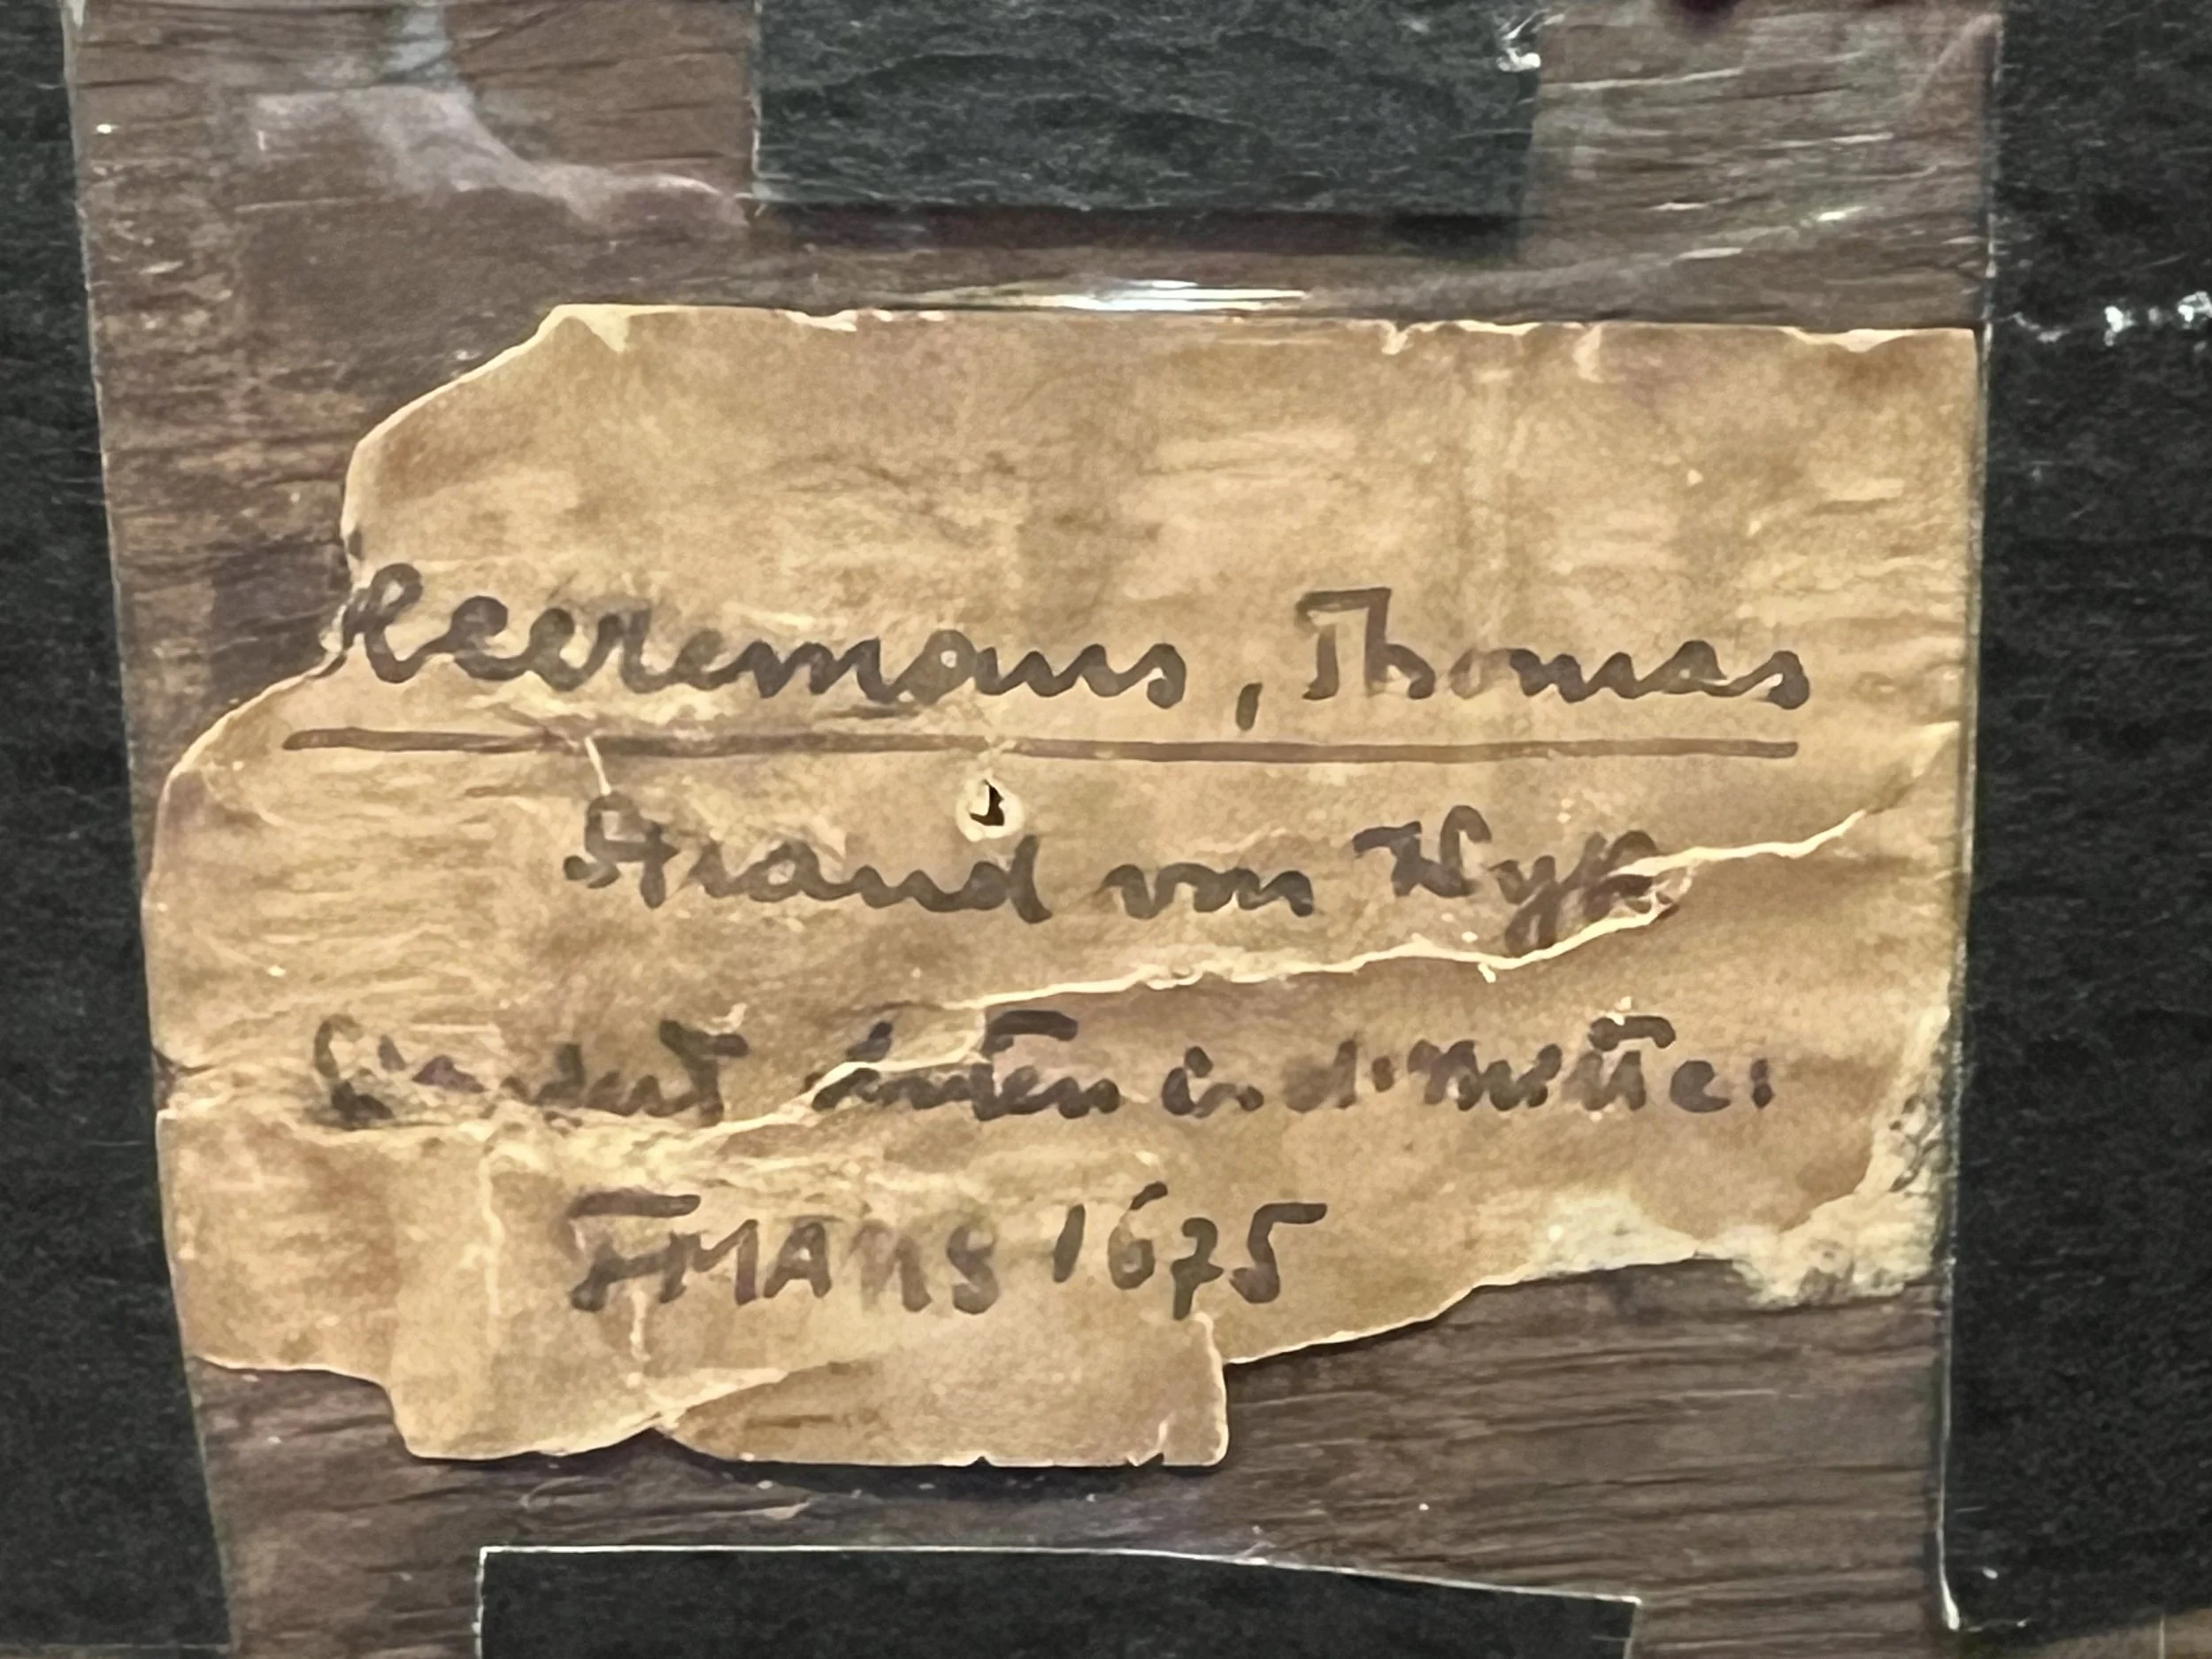 Heeremans, Thomas
Strand von Wyk
unten in d. Mitte:
FMANS 1675